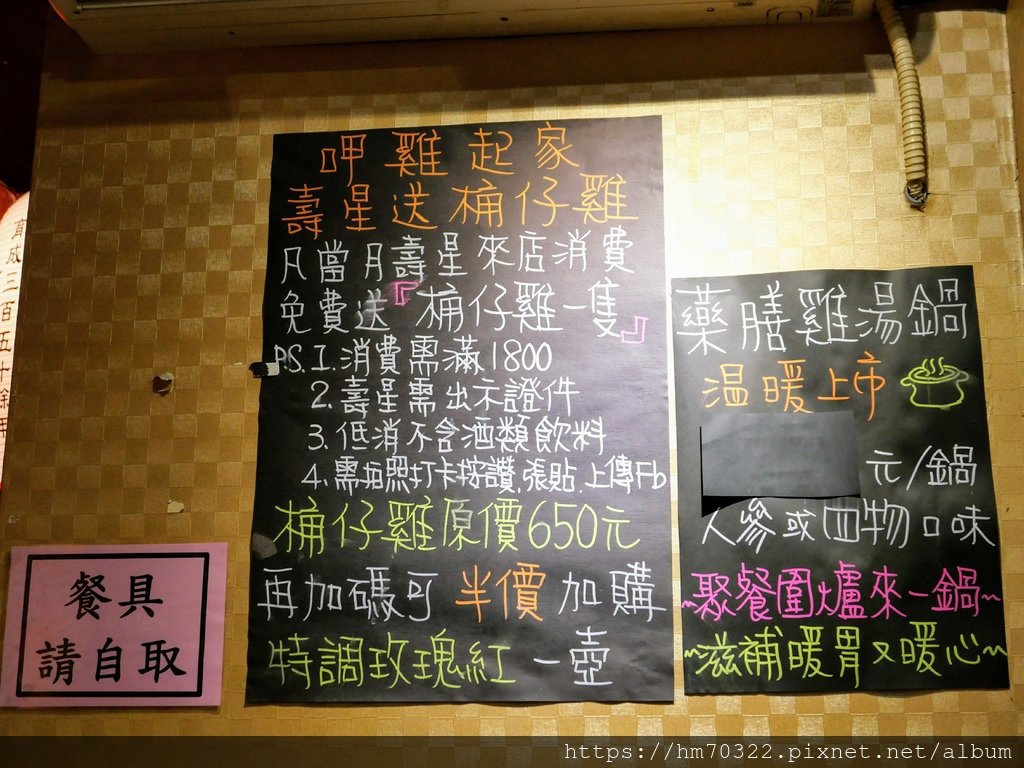 呷雞起家
壽星送桶仔雞
凡當月壽星來店消費
免費送『桶仔雞一隻』
P.S.1.消費需滿1800
2.壽星需出示證件
3.低消不含酒類飲料
4.需拍照打卡按讚.張貼.上傳Fb
桶仔雞原價650元
再加碼可半價加購
特調玫瑰紅一壺
藥膳雞湯鍋
温暖上市
元/鍋
人參或四物口味
~聚餐圍爐來一鍋~
~滋補暖胃又暖心~
餐具
請自取
育成三百五十餘年
https://hm70322.pixnet.net/album